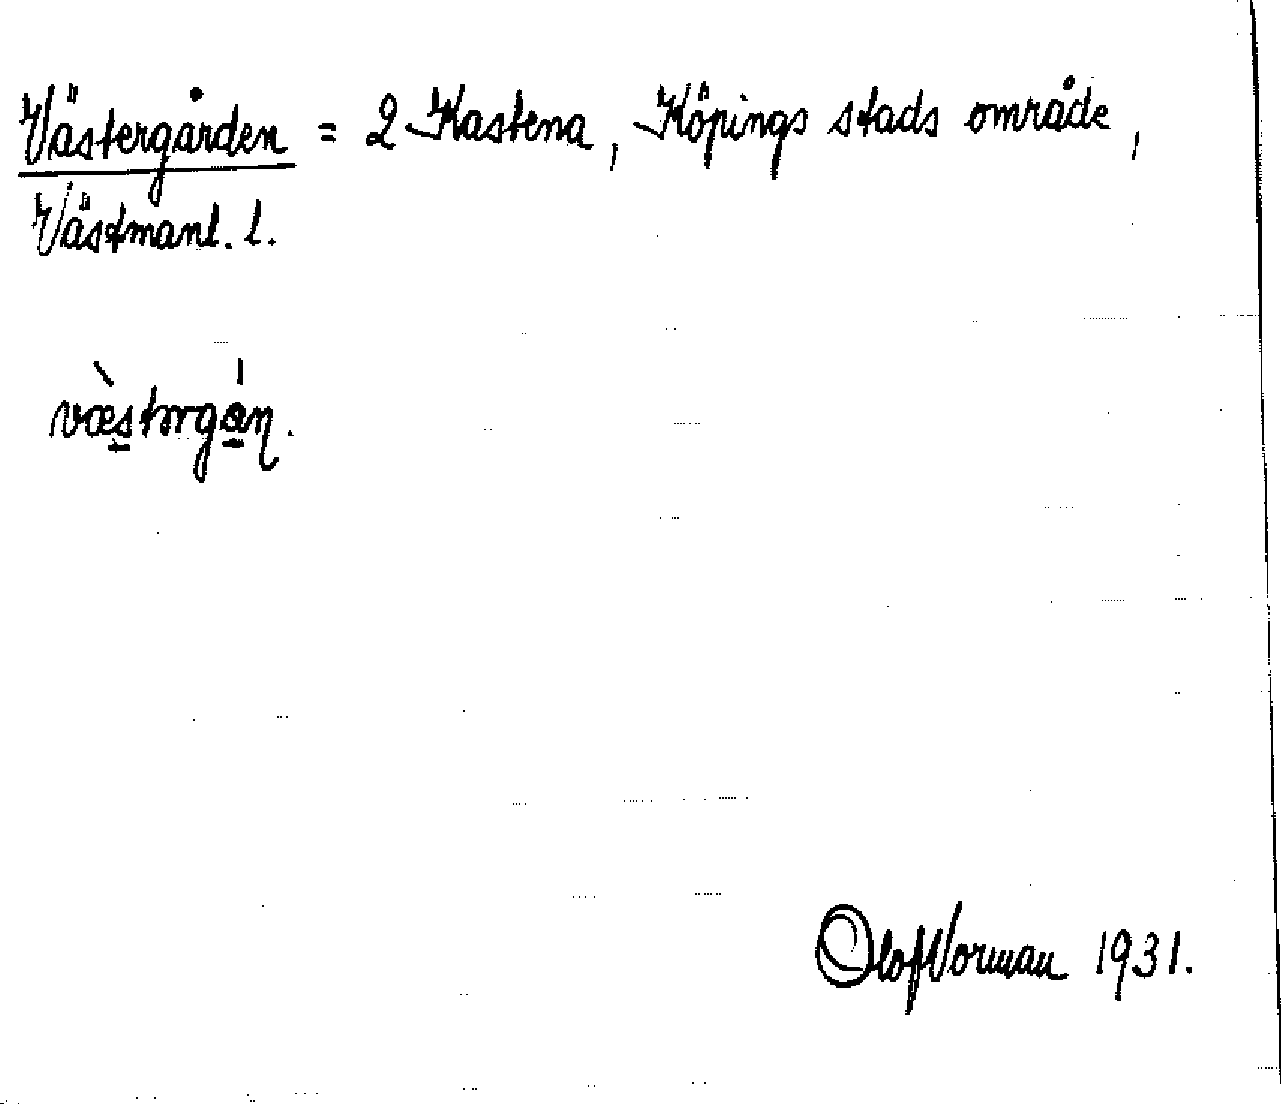 Västergården = 2 Kastena, Köpings stads område,
Västmanl. l.
væ̀stərgån.
Olof Norman 1931.